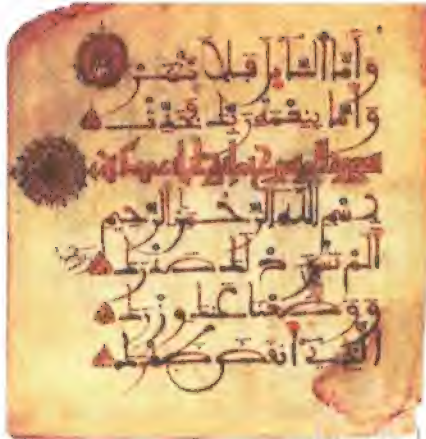 وأما السآئل فلا تنهر
وأما بنعمة ربك فحدث
سورة الم نشرح
بسم الله الرحمن الرحيم
ألم نشرح لك صدرك
ووضعنا عنك وزرك
الذي أنقض ظهرك